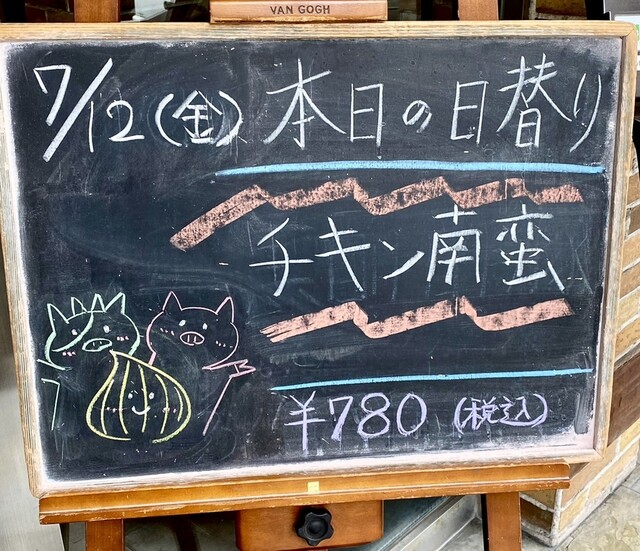 VAN GOGH
7/12(金) 本日の日替り
チキン南蛮
¥780 (税込)